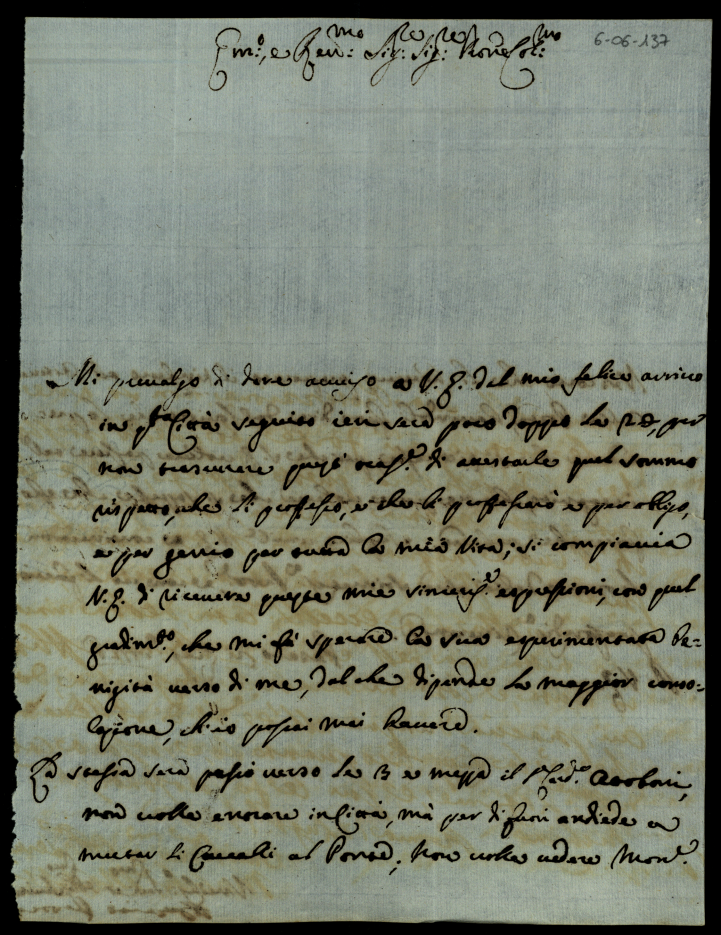 6-06-137
Em.o, e Rev.mo Sig.re Sig.re Prone Col.mo
Mi prevalgo di dare avviso a V. E. del mio felice arrivo
in q.ta Città seguito ieri sera poco doppo le 22, per
non trascurare quest' occas.e di attestarle quel sommo
rispetto, che li professo, e che li professerò e per obligo,
e per genio per tutta la mia vita; si compiaccia
V. E. di ricevere queste mie sinceris.e espressioni, con quel
gradim.to, che mi fà sperare la sua esperimentata be=
nignità verso di me, dal che dipende la maggior conso=
lazione, ch'io possi mai havere.
La stessa sera passò verso le 3 e mezza il S.r Card.e
non volle entrare in Città, mà per di fuori andiede a
mutar li Cavalli al Ponte, non volle vedere Mons.r